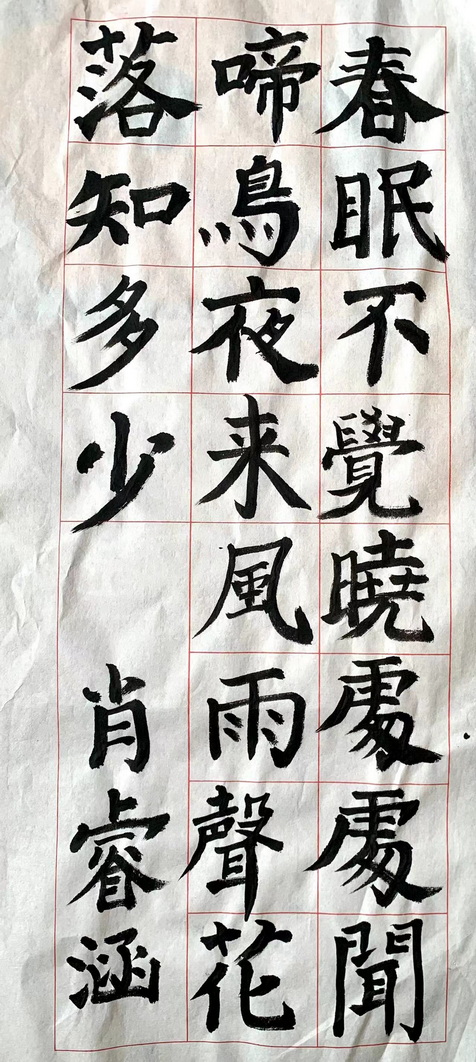 春眠不覺曉處處聞
啼鳥夜来風雨聲花
落知多少
肖睿涵